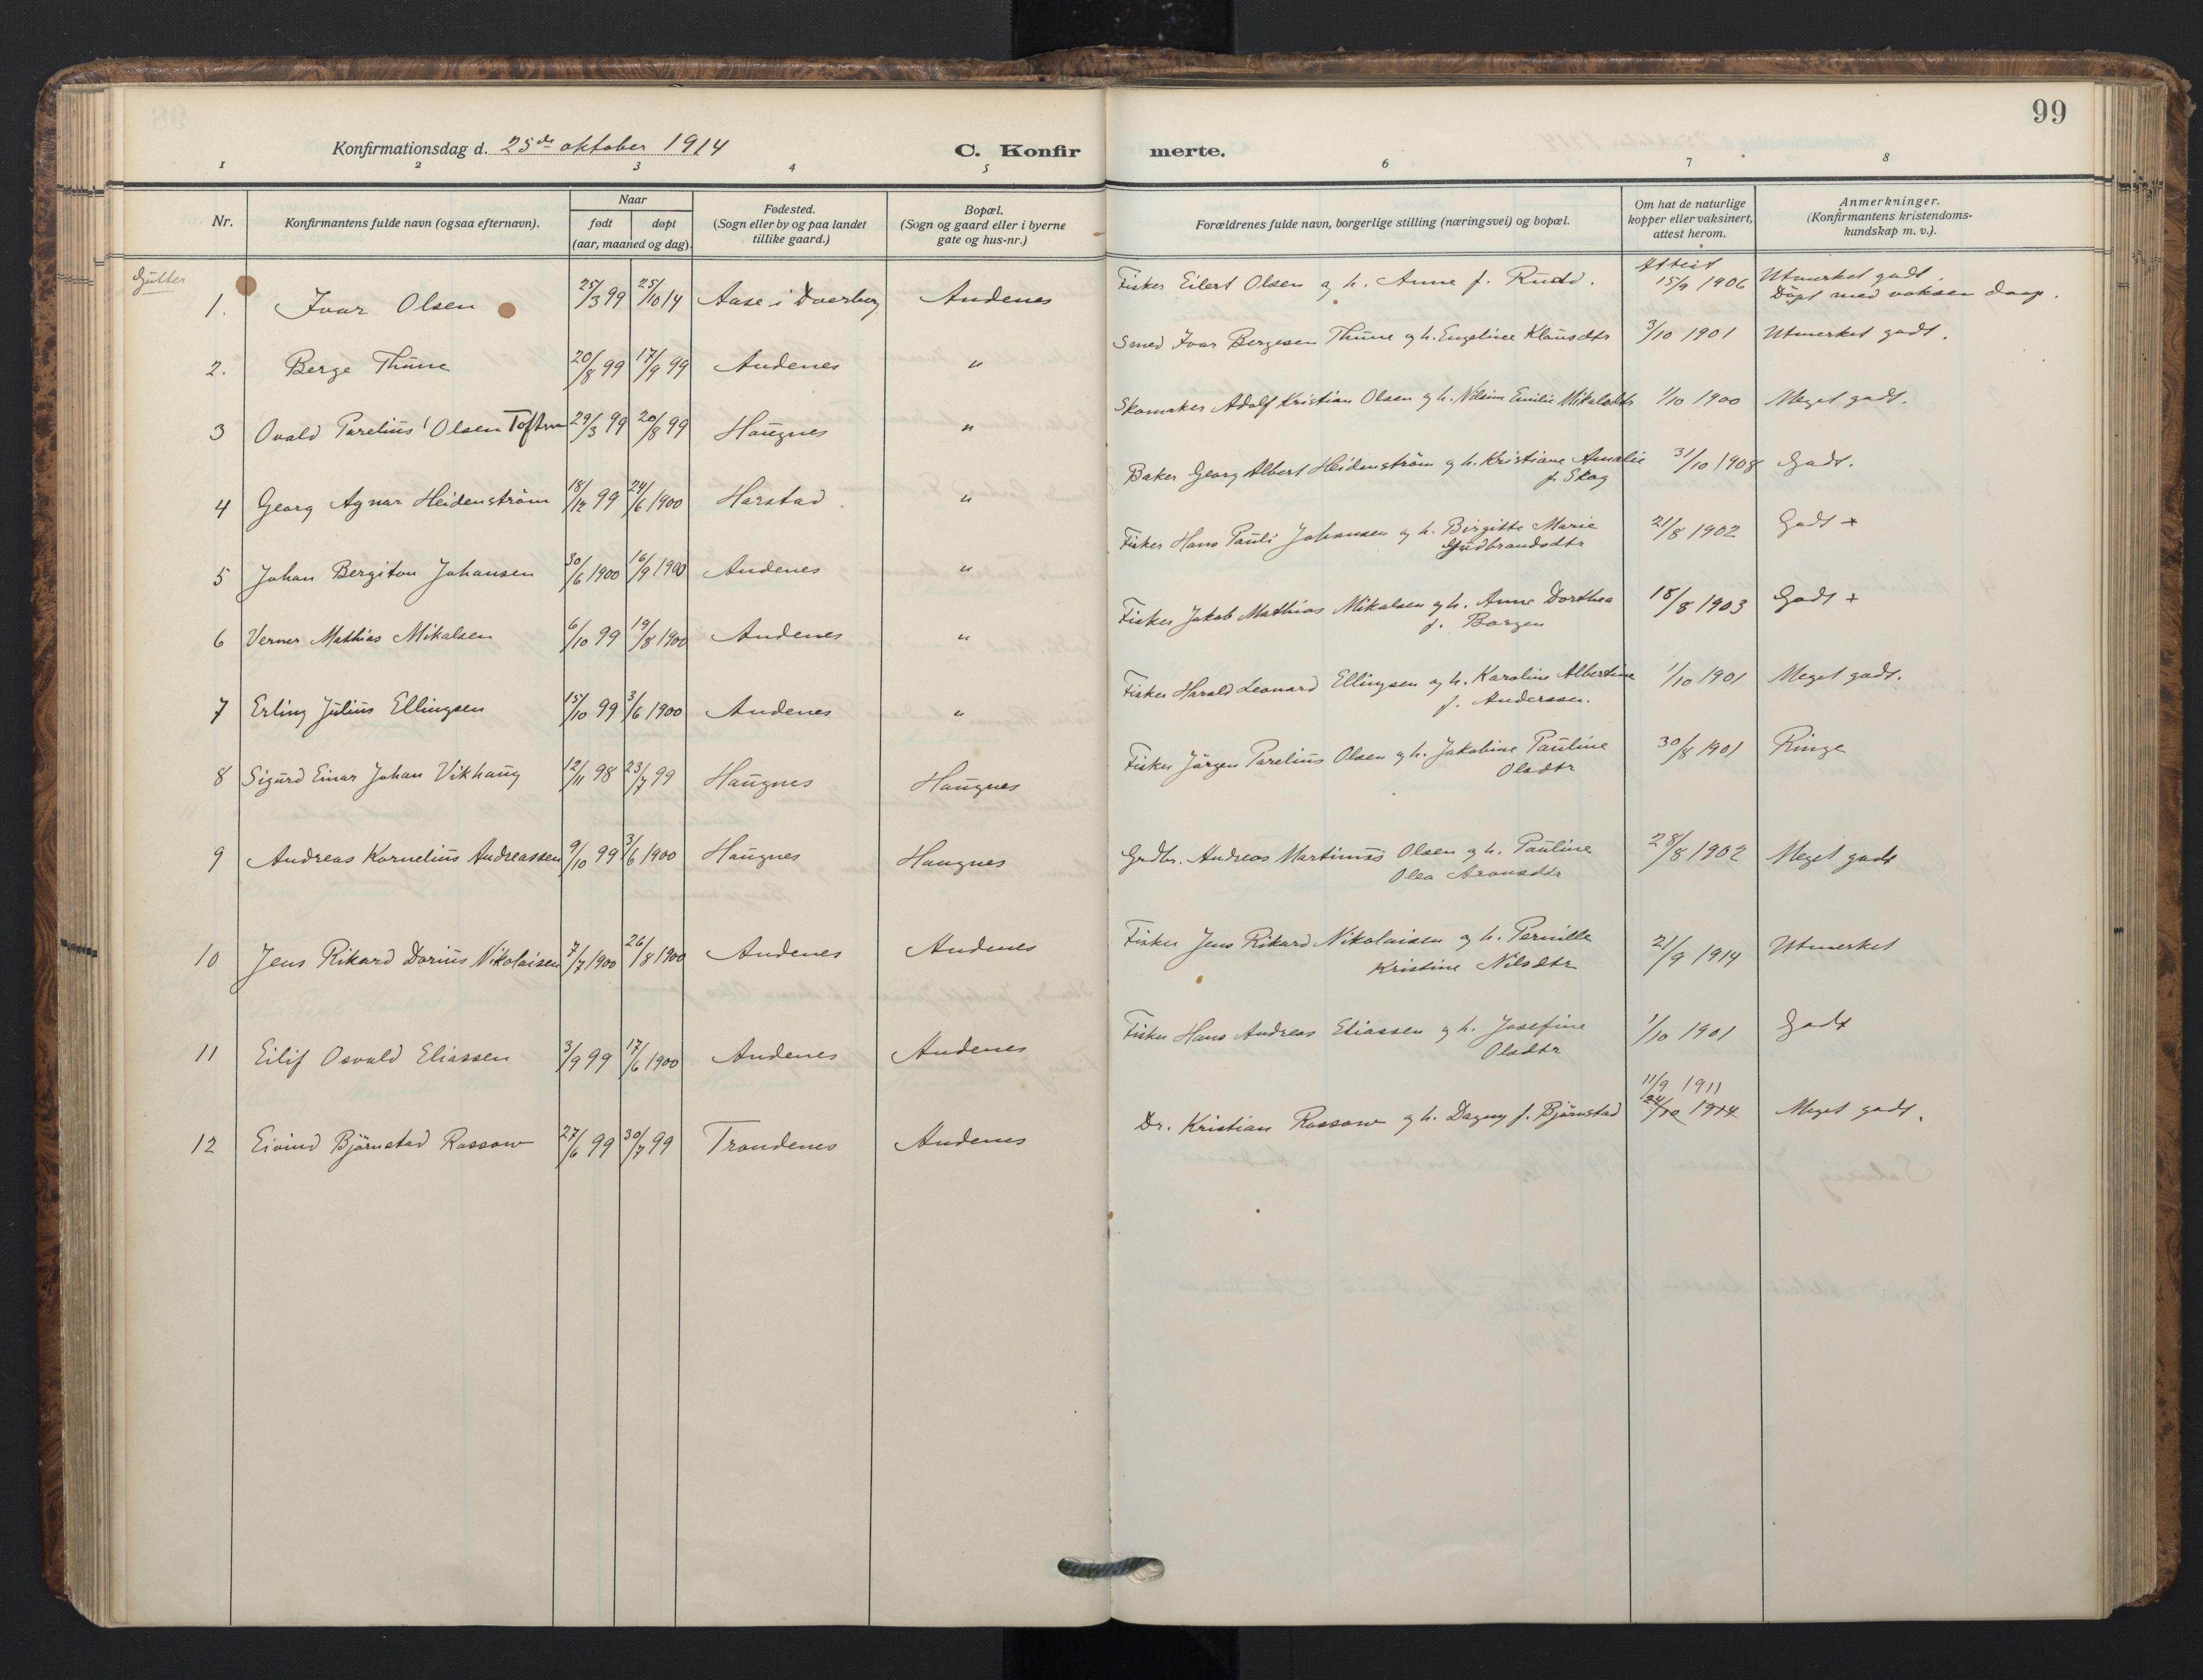 99
Konfirmationsdag d. 25de oktober 1914
C. Konfirmerte.
1 2 3 4 5 6 7 8
Nr.
Konfirmantens fulde navn (ogsaa efternavn).
Naar
født døpt
(aar, maaned og dag).
Fødested.
(Sogn eller by og paa landet
tillike gaard.)
Bopæl.
(Sogn og gaard eller i byerne
gate og hus-nr.)
Forældrenes fulde navn, borgerlige stilling (næringsvei) og bopæl.
Om hat de naturlige
kopper eller vaksinert,
attest herom.
Anmerkninger.
(Konfirmantens kristendoms-
kundskap m. v.).
Gutter
1. Ivar Olsen 25/3 99 25/10 14 Aase i Dverberg Andenes Fisker Eilert Olsen og h. Anne f. Rudd. Attest 15/9 1906 Utmerket godt.
Døpt med voksen daap.
2. Berge Thune 20/8 99 17/9 99 Andenes " Smed Ivar Bergesen Thune og h. Engeline Klausdtr 3/10 1901 Utmerket godt.
3 Ovald Parelius Olsen Toften 29/3 99 20/8 99 Haugnes " Skomaker Adolf Kristian Olsen og h. Emilie Mikalsdtr 1/10 1900 Meget godt.
4 Georg Agnar Heidenström 18/12 99 24/6 1900 Harstad " Baker Georg Albert Heidenström og h. Kristiane Amalie 31/10 1908 Godt.
f. Skog
5 Johan Bergiton Johansen 30/6 1900 16/9 1900 Andenes " Fisker Hans Pauli Johansen og h. Birgitte Marie 21/8 1902 Godt +
Gudbrandsdtr
6 Verner Mathias Mikalsen 6/10 99 19/8 1900 Andenes " Fisker Jakob Mathias Mikalsen og h. Anne Dorthea 18/8 1903 Godt +
f. Borgen
7 Erling Julius Ellingsen 15/10 99 3/6 1900 Andenes " Fisker Harald Leonard Ellingsen og h. Karoline Albertine 1/10 1901 Meget godt.
f. Anderssen.
8 Sigurd Einar Johan Vikhaug 12/11 98 23/7 99 Haugnes Haugnes Fisker Jørgen Parelius Olsen og h. Jakobine Pauline 30/8 1901 Ringe
Olsdtr
9 Andreas Kornelius Andreassen 9/10 99 3/6 1900 Haugnes Haugnes Grdbr. Andreas Martinus Olsen og h. Pauline 28/8 1902 Meget godt
Olea Aronsdtr
10 Jens Rikard Dorius Nikolaisen 7/7 1900 26/8 1900 Andenes Andenes Fisker Jens Rikard Nikolaisen og h. Pernille 21/9 1914 Utmerket
Kristine Nilsdtr
11 Eilif Osvald Eliassen 3/9 99 17/6 1900 Andenes Andenes Fisker Hans Andreas Eliassen og h. Josefine 1/10 1901 Godt
Olsdtr
11/9 1911
12 Eivind Björnstad Rossow 27/6 99 30/7 99 Trondenes Andenes Dr. Kristian Rossow og h. Dagny f. Björnstad 24/10 1914 Meget godt.